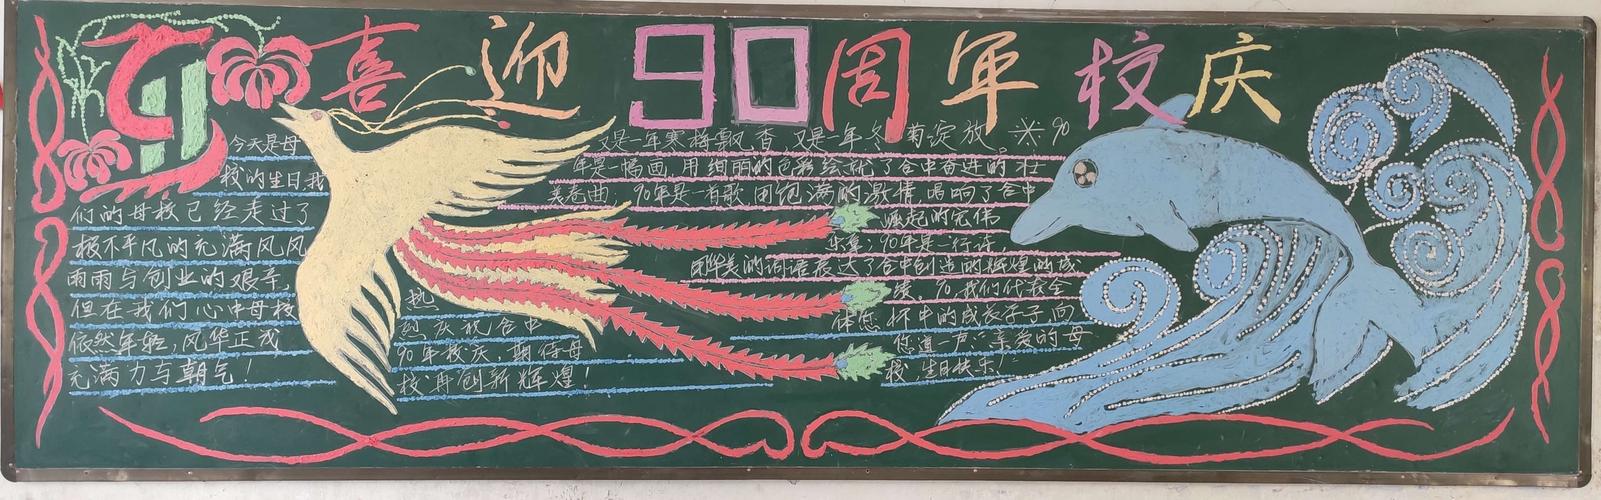 喜迎90周年校庆
今天是母
校的生日我
们的母校已经走过了
极不平凡的充满风风
雨雨与创业的艰辛,
但在我们心中母校
依然年轻,风华正茂
充满力与朝气!
热
烈庆祝合中
90年校庆,期待母
校再创新辉煌!
又是一年寒梅飘香,又是一年冬菊淀放。90
年是一幅画,用绚丽的色彩绘就了合中奋进的壮
美卷曲;90年是一首歌,用饱满的激情唱响了合中
崛起的宏伟
乐章;90年是一行诗,
用华美的词语表达了合中创造的辉煌的成
绩。90,我们代表全
体您怀中的成长学子向
您道一声:亲爱的母
校,生日快乐!